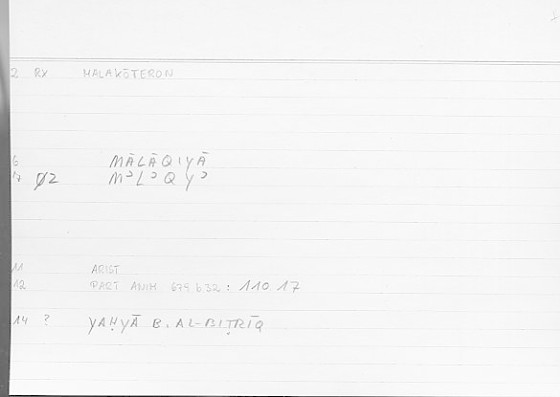 2 RX MALAKŌTERON
6 MĀLĀQIYĀ
7 Ø2 MʾLʾQYʾ
11 ARIST
12 PART ANIM 679 b 32 : 110.17
14 ? YAḤYĀ B. AL-BIṬRĪQ